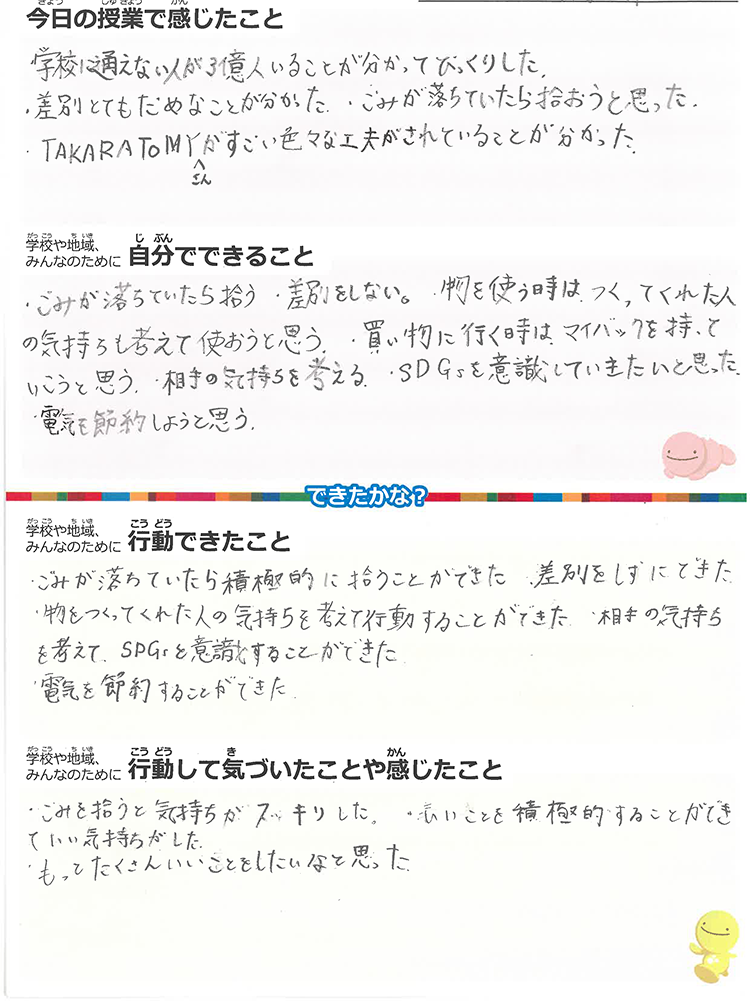 今日の授業で感じたこと
学校に通えない人が3億人いることが分かってびっくりした。
・差別とてもだめなことが分かった。・ごみが落ちていたら拾おうと思った。
・TAKARATOMYさんがすごい色々な工夫がされていることが分かった。
学校や地域、みんなのために 自分でできること
・ごみが落ちていたら拾う ・差別をしない。・物を使う時は、つくってくれた人
の気持ちも考えて使おうと思う。・買い物に行く時は、マイバックを持って
いこうと思う。・相手の気持ちを考える。・SDGsを意識していきたいと思った。
・電気を節約しようと思う。
できたかな？
学校や地域、みんなのために 行動できたこと
・ごみが落ちていたら積極的に拾うことができた ・差別をしずにできた
・物をつくってくれた人の気持ちを考えて行動することができた。・相手の気持ち
を考えて、SDGsを意識することができた
・電気を節約することができた。
学校や地域、みんなのために 行動して気づいたことや感じたこと
・ごみを拾うと気持ちがスッキリした。・良いことを積極的することができ
ていい気持ちがした。
・もってたくさんいいことをしたいなと思った